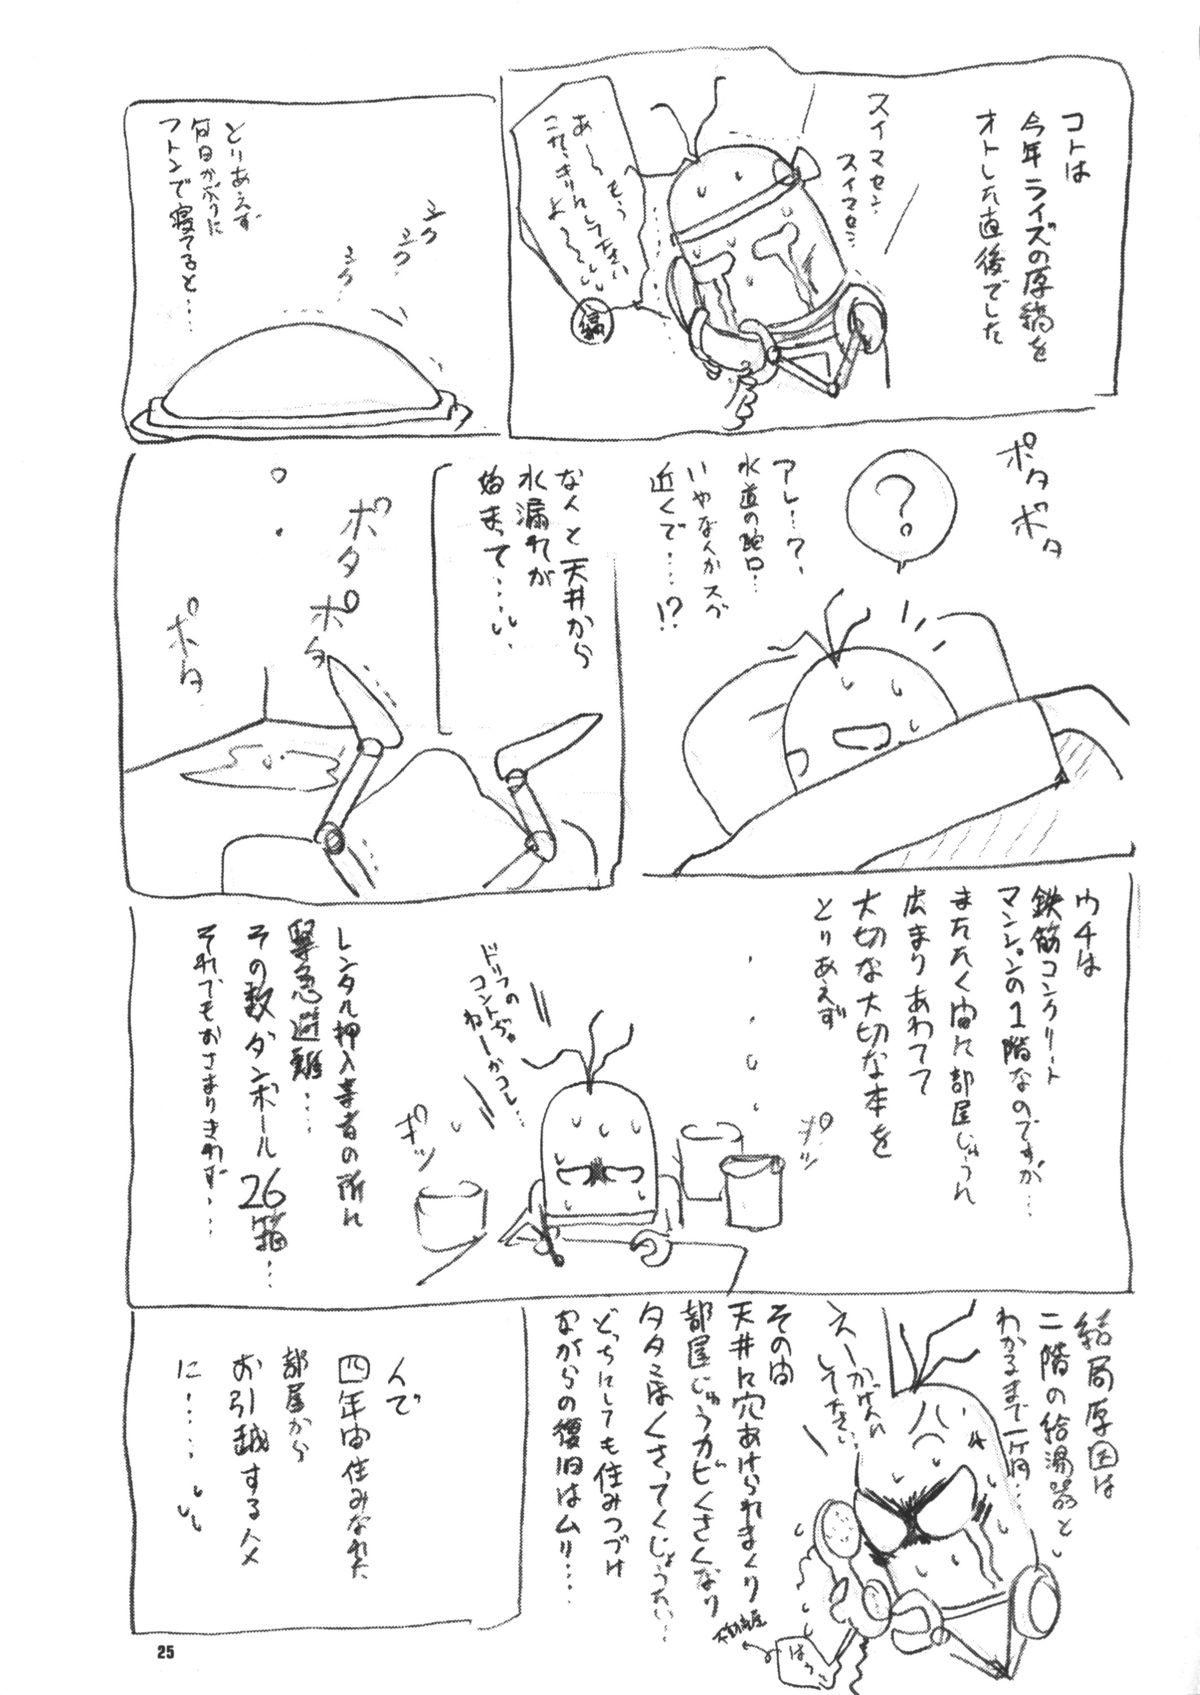 コトは
今年ライズの原稿を
オトした直後でした
スイマセン
スイマセン
あ〜〜もう
これっきりにして下さい
よ〜〜
編
とりあえず
フトンで寝てると…
シク
シク
シク
ポタ
ポタ
?
アレ…?
水道の蛇口…
いやなんかスグ
近くで……!?
なんと天井から
水漏れが
始まって……
ポタ
ポタ
ポタ
ウチは
鉄筋コンクリート
マンションの1階なのですが…
またたく間に部屋じゅうに
広まりあわてて
大切な大切な本を
とりあえず
ポッ
ドリフの
コントじゃ
ねーかコレ…
ポッ
レンタル押入業者の所に
緊急避難……
その数ダンボール26箱…
それでもおさまりきれず……
結局原因は
二階の給湯器と
わかるまで一ヶ月…
えーかげんに
して下さい
その間
天井に穴あけられまくり
部屋じゅうカビくさくなり
どっちにしても住みつづけ
ながらの復旧はムリ……
不動産屋
んで
四年間住みなれた
部屋から
お引越するハメ
に……
25